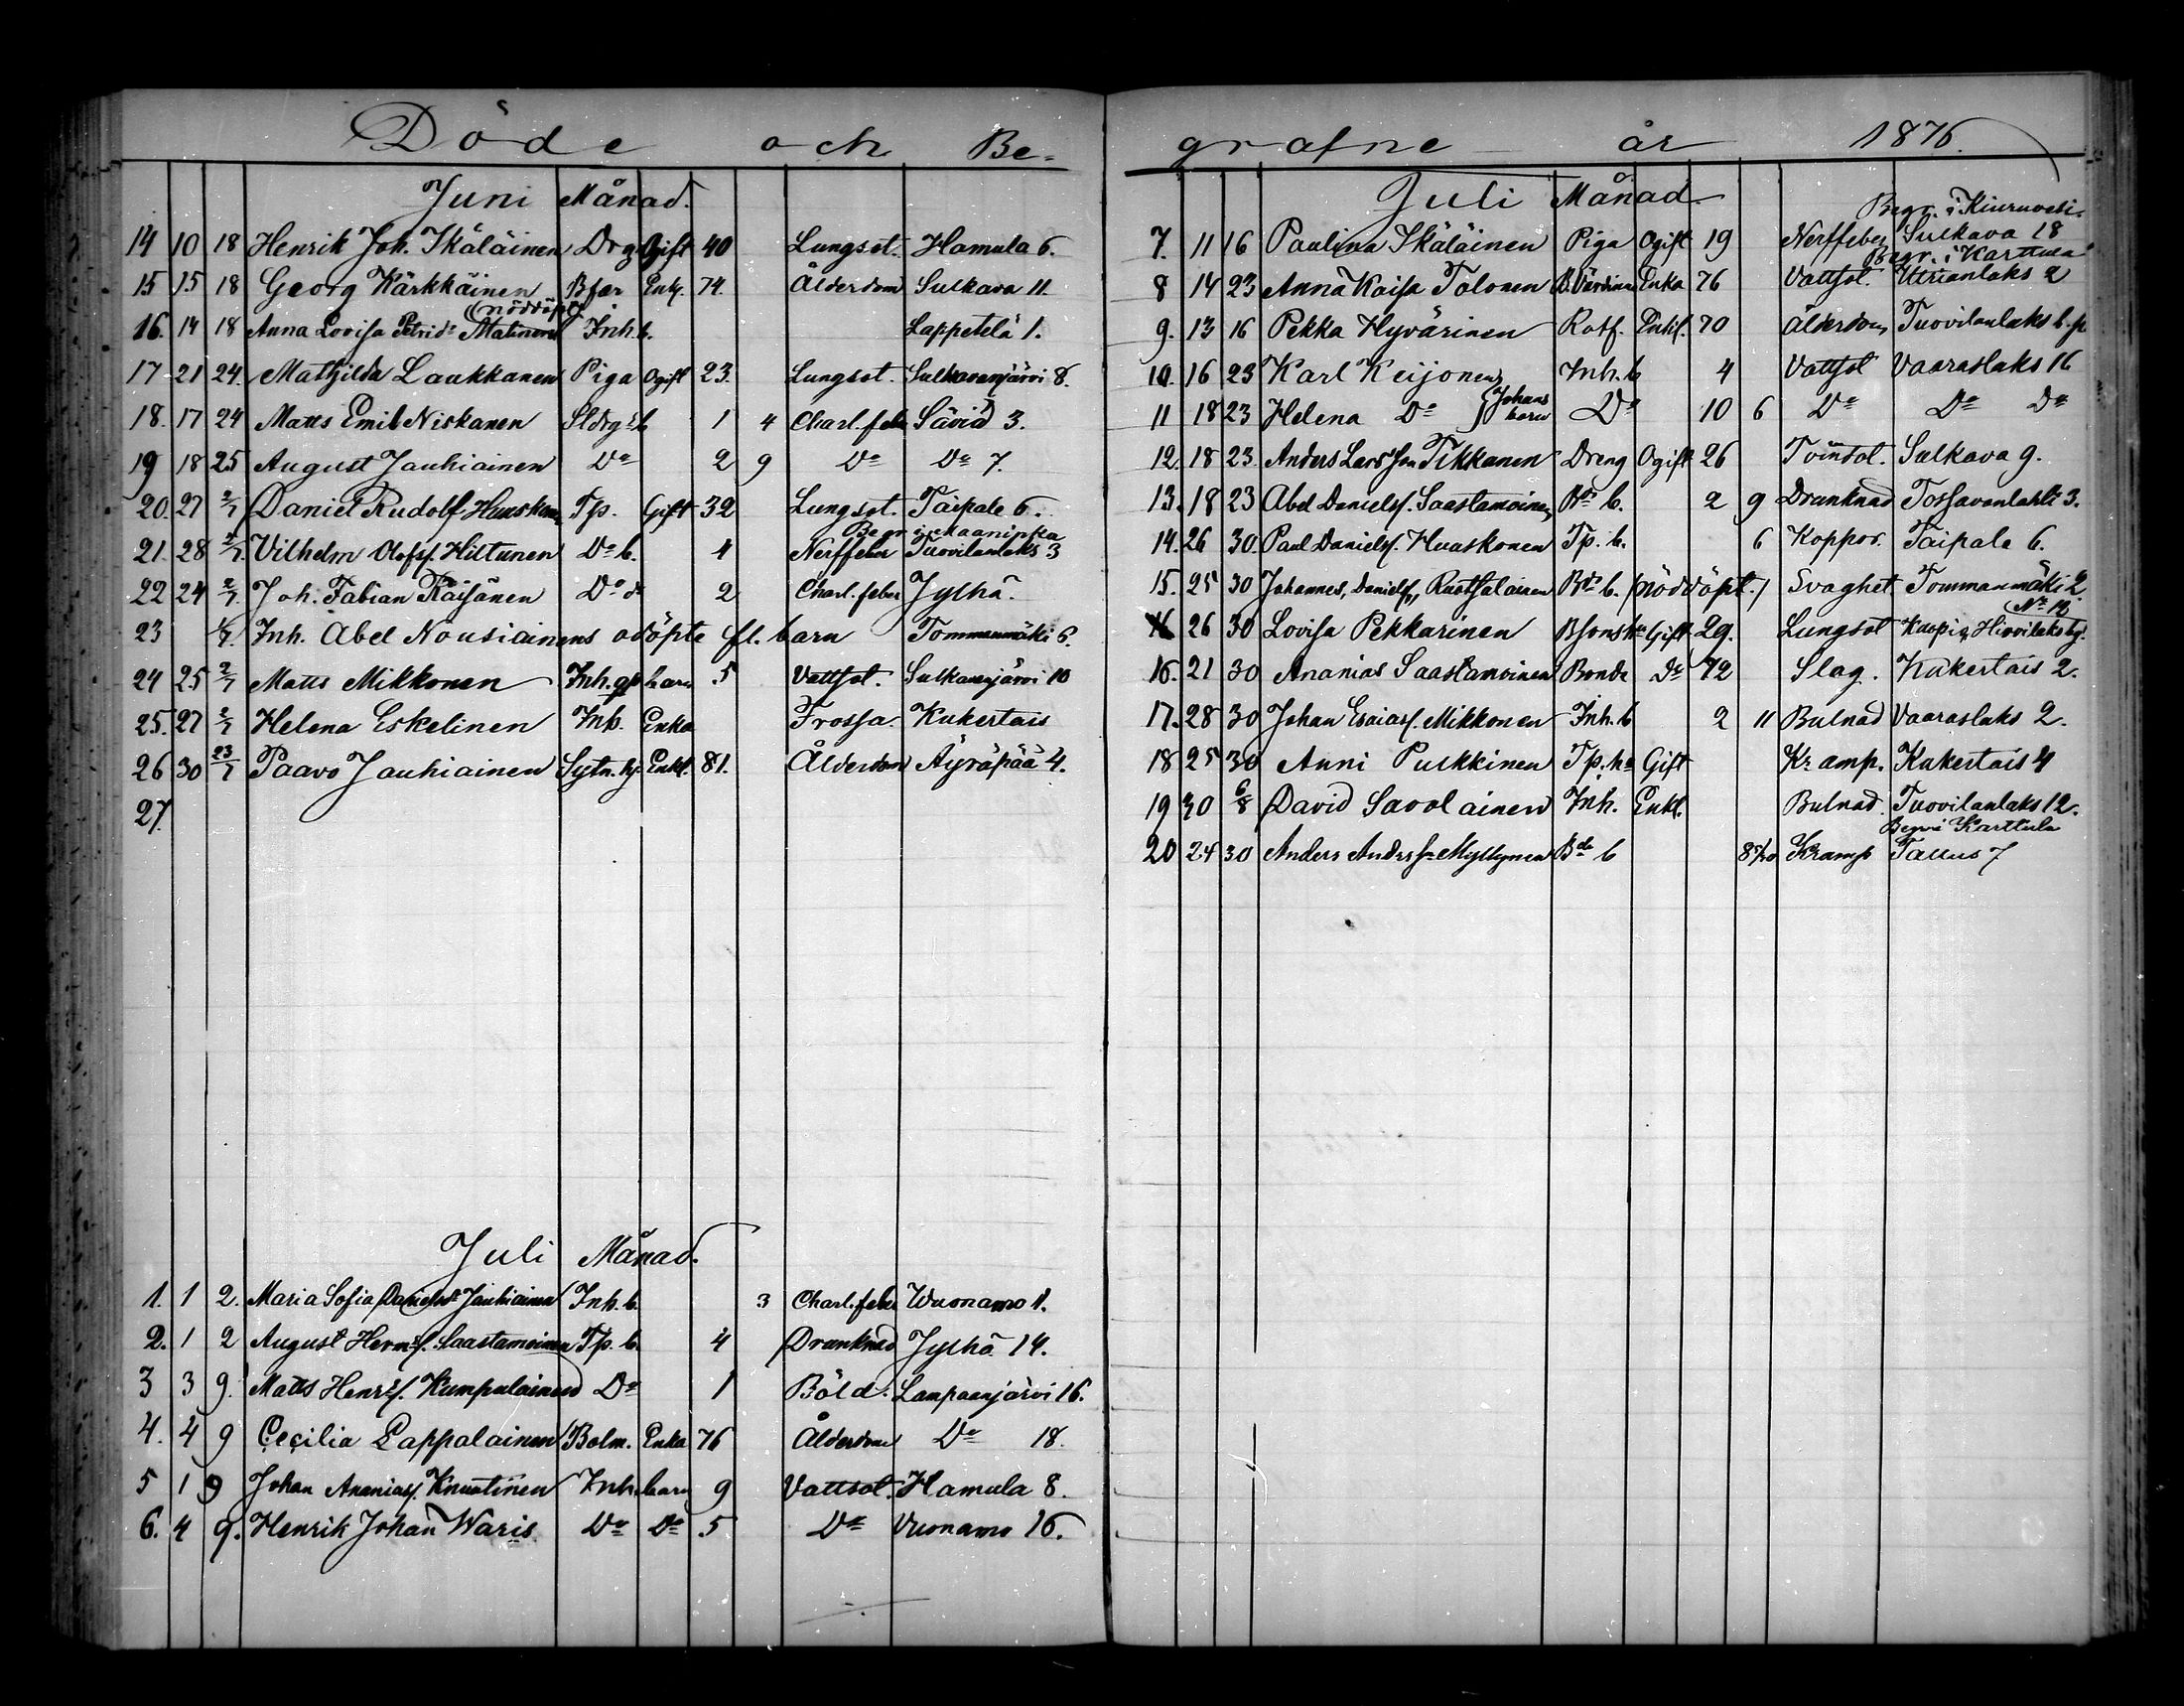 Döde och Be-
Juni Månad.
14 10 18 Henrik Joh. Ikäläinen Drg Gift 40 Lungsot. Hamula 6.
15 15 18 Georg Kärkkäinen Bfar Enkl. 74. Ålderdom Sulkava 11.
(nöddöpt)
16. 14 18 Anna Lovisa Petrid. Matinen Inh. b. Lappetelä 1.
17 21 24. Mathilda Laukkanen Piga Ogift 23. Lungsot. Sulkavanjärvi 8.
18. 17 24 Matts Emil Niskanen Sldrg. b 1 4 Charl. feber Säviä 3.
19 18 25 August Jauhiainen Do 2 9 Do Do 7.
20. 27 2/7 Daniel Rudolf Huuskonen Tp. Gift 32 Lungsot. Taipale 6.
Begr. i Maaninka
21. 28 2/7. Vilhelm Olofs. Hiltunen Do b. 4 Nerffeber Tuovilanlaks 3
22 24 2/7 Joh. Fabian Räisänen Do do 2 Charl. feber Jylhä.
23 Inh. Abel Nousiainens odöpte fl. barn Tommanmäki 6.
24 25 2/7 Matts Mikkonen Inh. gp barn 5 Vattsot. Sulkavanjärvi 10
25. 27 2/7 Helena Eskelinen Inh. Enka Frossa. Kukertais
26 30 23/7 Paavo Jauhiainen Sytn. hj. Enkl. 81. Ålderdom Äyräpää 4.
27.
Juli Månad.
1. 1 2. Maria Sofia Danielsdr Jauhiainen Inh. b. 3 Charl. feber Wuonamo 1.
2. 1 2 August Herms. Saastamoinen Tp. b. 4 Drunknad Jylhä 14.
3 3 9. Matts Henrs. Kumpulainen Do 1 Böld. Lampaanjärvi 16.
4. 4 9 Cecilia Pappalainen Bolm. Enka 76 Ålderdom Do 18.
5 1 9 Johan Ananias. Knuutinen Inh. barn 9 Vattsot. Hamula 8.
6. 4 9. Henrik Johan Waris Do Do 5 Do Vuonamo 16.
grafne år 1876.
Juli Månad
Begr. i Kiuruvesi.
7. 11 16 Paulina Ikäläinen Piga Ogift 19 Nerffeber Sulkava 18
Begr. i Karttula
8 14 23 Anna Kaisa Tolonen B. Värdinna Enka 76 Vattsot. Utrianlaks 2
9. 13 16 Pekka Hyvärinen Rotf. Enkl. 70 Ålderdom Tuovilanlaks b. p
10. 16 23 Karl Keijonen Inh. b 4 Vattsot Vaaraslaks 16
11 18 23 Helena Do } Johans barn Do 10 6 Do Do Do
12. 18 23 Anders Larsson Tikkanen Dreng Ogift 26 Tvinsot. Sulkava 9.
13. 18 23 Abel Daniels. Saastamoinen Bds b. 2 9 Drunknad Tossavanlahti 3.
14. 26 30. Paul Daniels. Huuskonen Tp. b. 6 Koppor. Taipale 6.
15. 25 30 Johannes, Daniels, Ruotsalainen Bds b. (nöddöpt.) Svaghet Tommanmäki 2
No 12
16 26 30 Lovisa Pekkarinen Bsons h. Gift 29. Lungsot Kuopio, Hirvilaks by.
16. 21 30 Ananias Saastamoinen Bonde Do 72 Slag. Kukertais 2.
17. 28 30 Johan Esaias. Mikkonen Inh. b 2 11 Bulnad Vaaraslaks 2.
18 25 30 Anni Pulkkinen Tp. ha Gift Kramp. Kukertais 4
19 30 6/8 David Savolainen Inh. Enkl. Bulnad Tuovilanlaks 12.
Begr. i Karttula
20 24 30 Anders Anders sn Myllynen Bds b Kramp Tallus 7